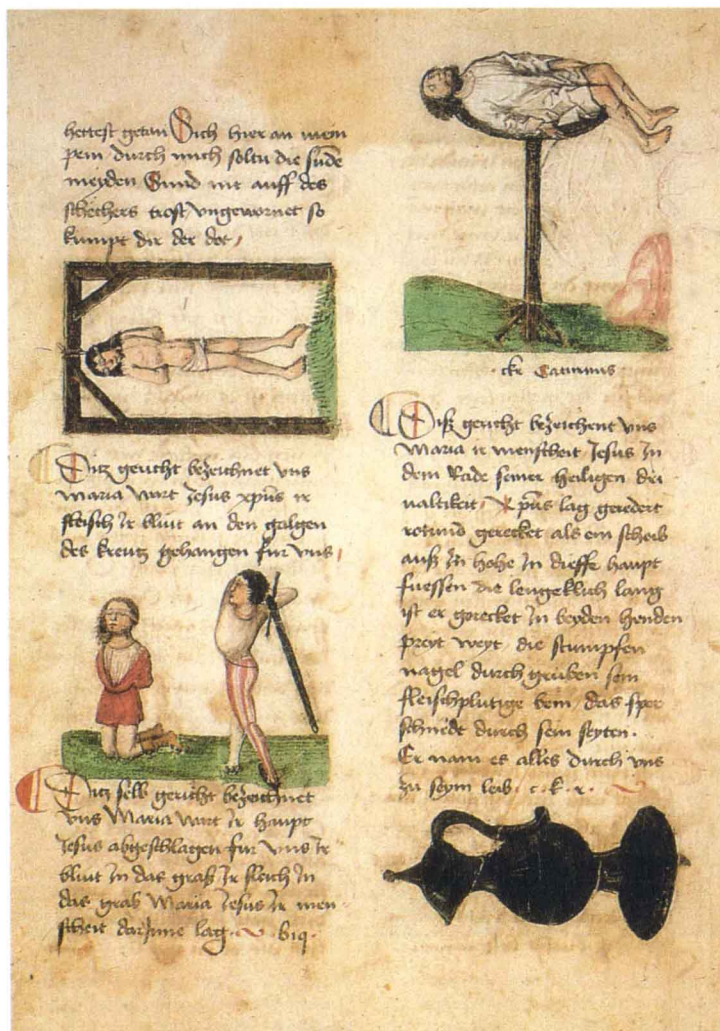 hettest getan Sich hier an mein
pein durch mich soltu die sunde
meyden Sund nit auff des
schechers trost ungewarnet so
kumpt dir der dot
Ditz gericht bezeichnet vns
Maria wart Jesus xpus ir
fleisch Ir bluut an den galgen
des kreutz gehangen fur vns
Ditz selb gericht bezeichnet
vns Maria wart Ir haupt
Jesus abgeschlagen fur vns Ir
bluut In das graß Ir fleich In
das grab Maria Jesus Ir men
scheit darJnne lag
Saturnus
Diß gericht bezeichent vns
Maria ir menscheit Jesus In
dem Rade seiner heiligen dri
ualtikeit xpus lag geredert
rotund gerecket als ein scheib
auß In hohe In dieffe haupt
fuessen die lengeklich lang
ist er gerecket In beyden henden
preyt weyt die stumpfen
nagel durch gruben sein
fleischplutige bein das sper
schneidt durch sein seyten
Er nam es alles durch vns
zu seym leib c. k. r.